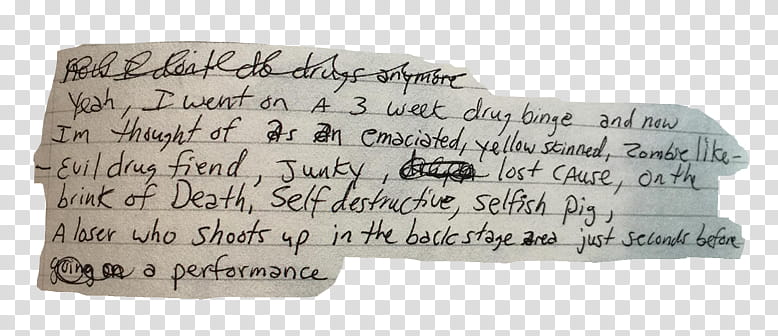 I don't do drugs anymore
Yeah, I went on A 3 week drug binge and now
Im thought of As An emaciated, yellow skinned, Zombie like-
- Evil drug fiend, Junky, lost CAuse, on the
brink of Death, Self destructive, selfish pig,
A loser who shoots up in the back stage area just seconds before
going on a performance